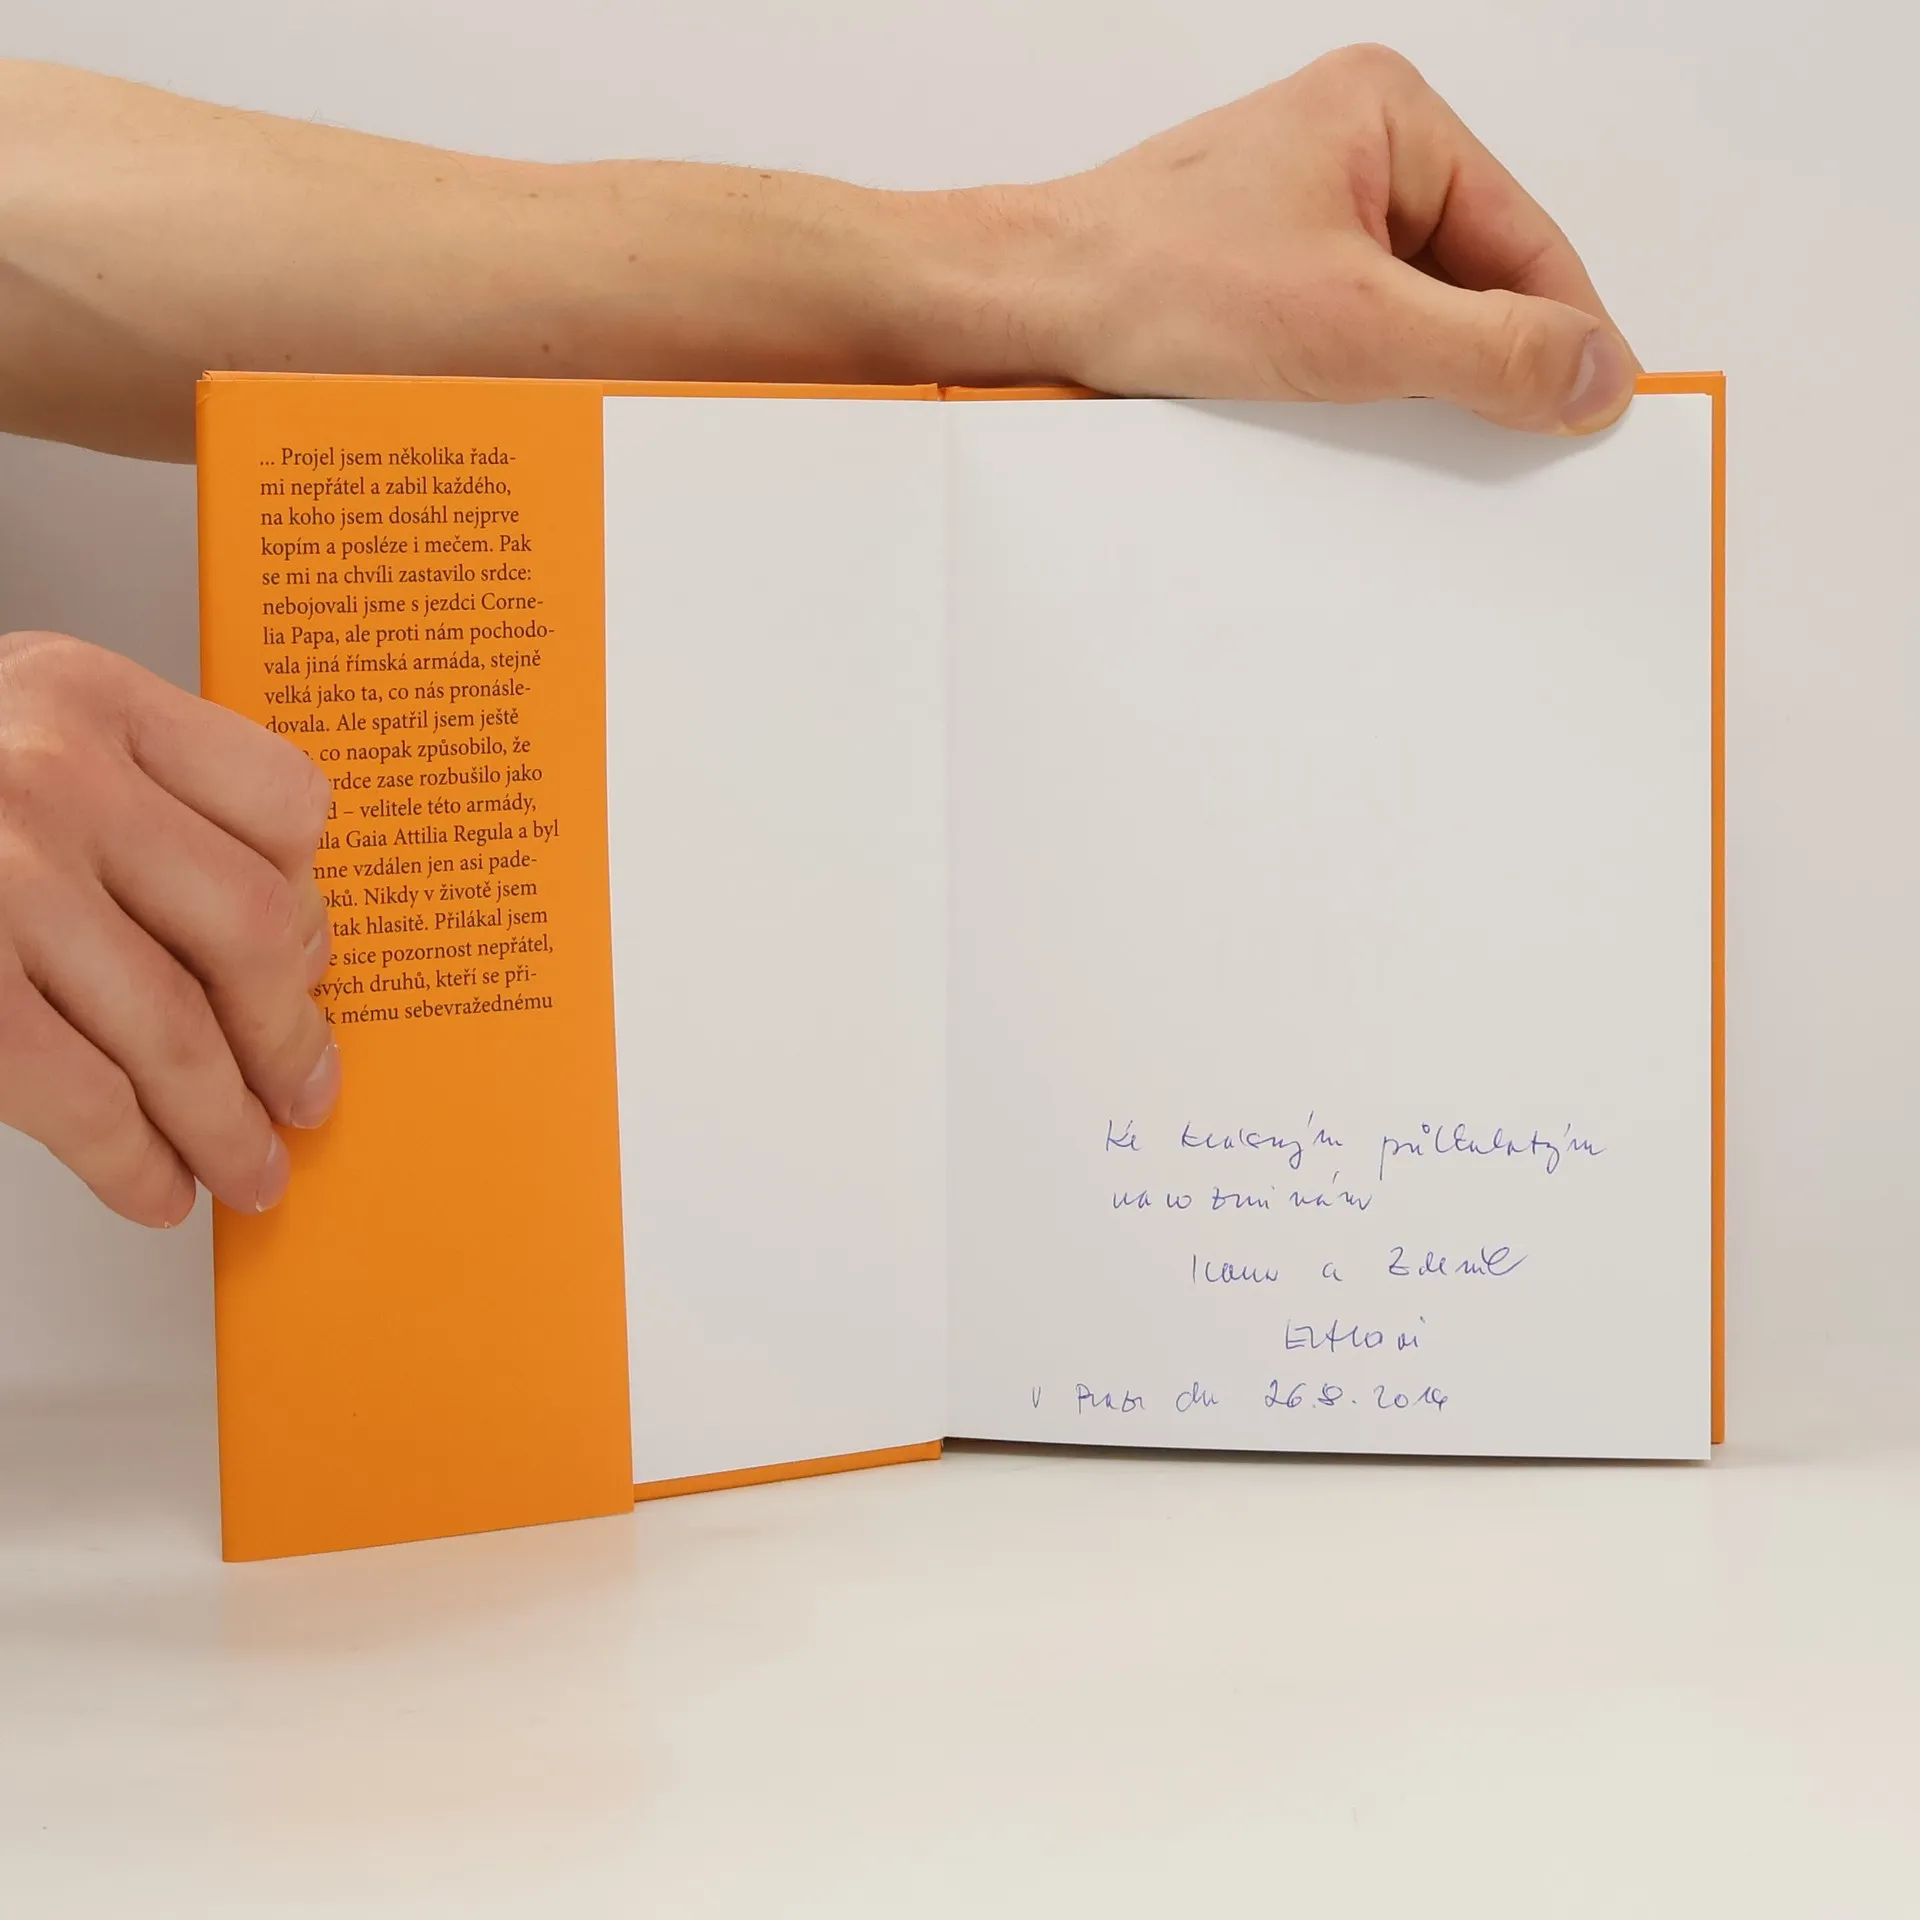 ... Projel jsem několika řada-
mi nepřátel a zabil každého,
na koho jsem dosáhl nejprve
kopím a posléze i mečem. Pak
se mi na chvíli zastavilo srdce:
nebojovali jsme s jezdci Corne-
lia Papa, ale proti nám pochodo-
vala jiná římská armáda, stejně
velká jako ta, co nás pronásle-
dovala. Ale spatřil jsem ještě
co naopak způsobilo, že
rdce zase rozbušilo jako
d – velitele této armády,
ula Gaia Attilia Regula a byl
mne vzdálen jen asi pade-
oků. Nikdy v životě jsem
tak hlasitě. Přilákal jsem
e sice pozornost nepřátel,
svých druhů, kteří se při-
k mému sebevražednému
Ke krásným půlkulatým
narozeninám
a Zdeněk
V Praze dne 26.8.2014